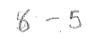 6 - 5